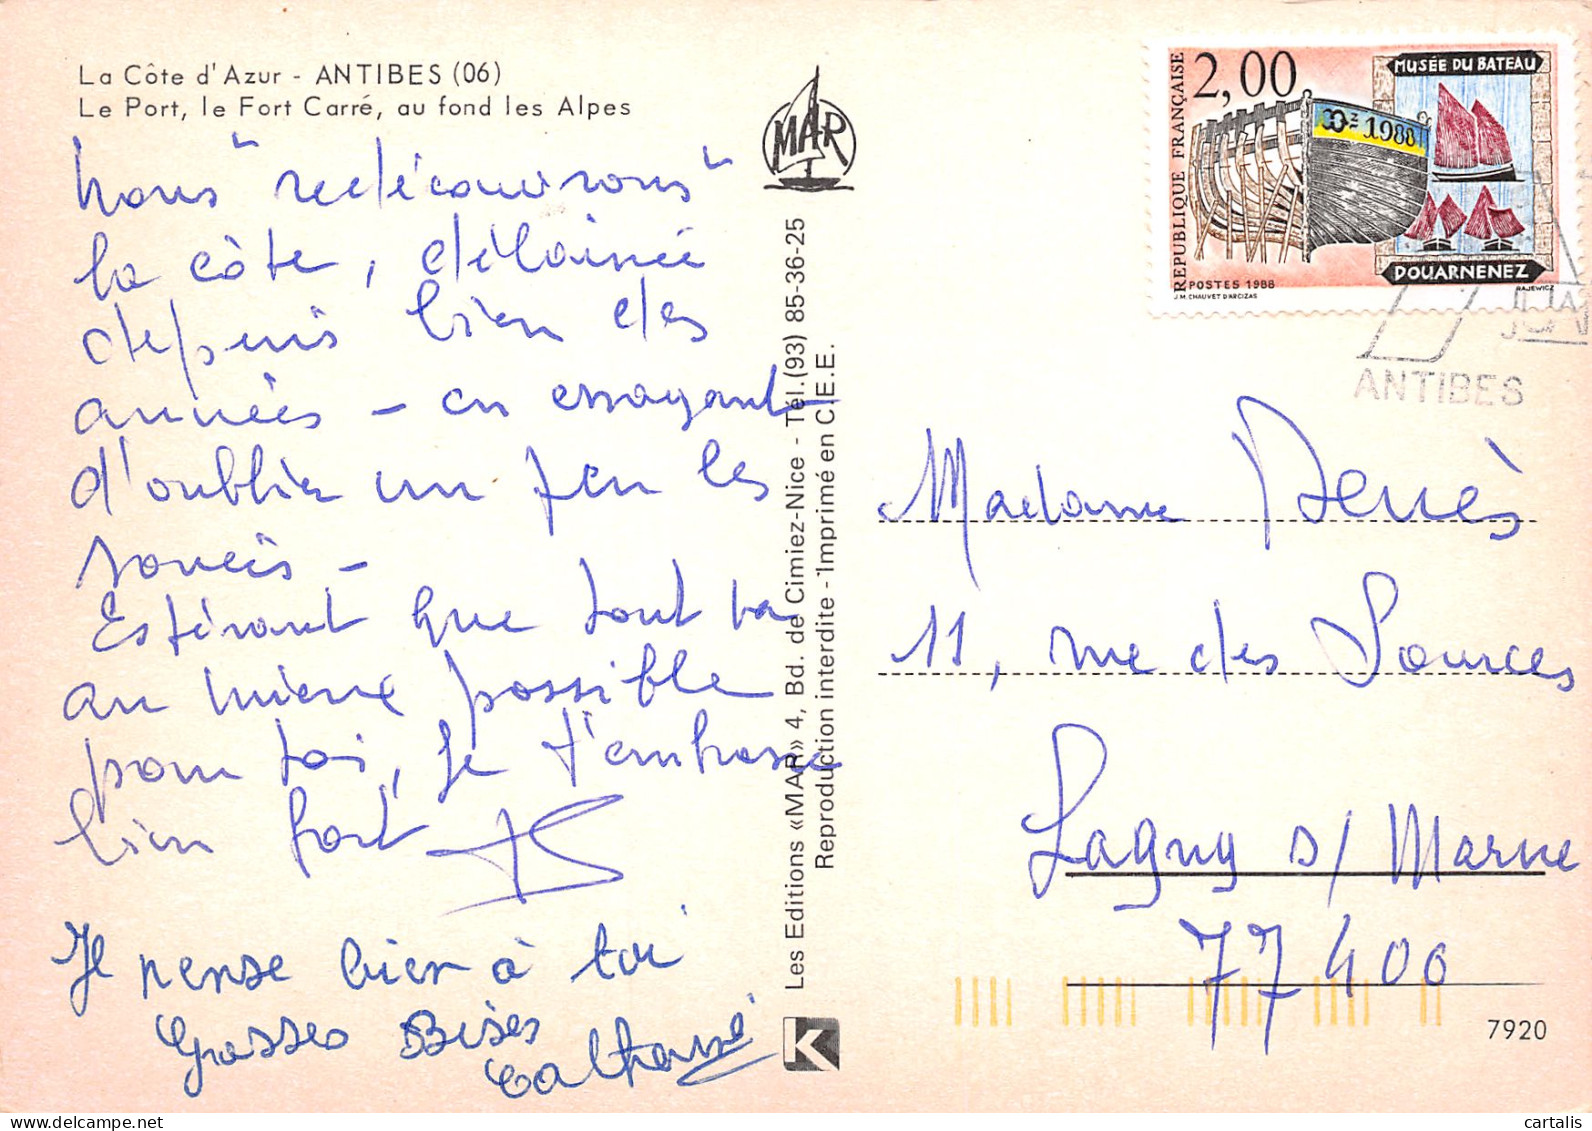 La Côte d'Azur - ANTIBES (06)
Le Port, le Fort Carré, au fond les Alpes
Nous "redécouvrons"
la côte, délaissée
depuis bien des
années - en essayant
d'oublier un peu les
soucis -
Espérant que tout va
au mieux possible
pour toi, je t'embrasse
bien fort
Je pense bien à toi
Grosses Bises
Catherine
MAR
Les Editions «MAR» 4, Bd. de Cimiez-Nice - Tél.(93) 85-36-25
Reproduction interdite - Imprimé en C.E.E.
K
2,00
RÉPUBLIQUE FRANÇAISE
MUSÉE DU BATEAU
Dz 1988
DOUARNENEZ
POSTES 1988
J.M. CHAUVET D'ARCIZAS
RAJEWICZ
ANTIBES
Madame
11, rue des Sources
Lagny s/ Marne
77400
7920
cartalis
www.delcampe.net